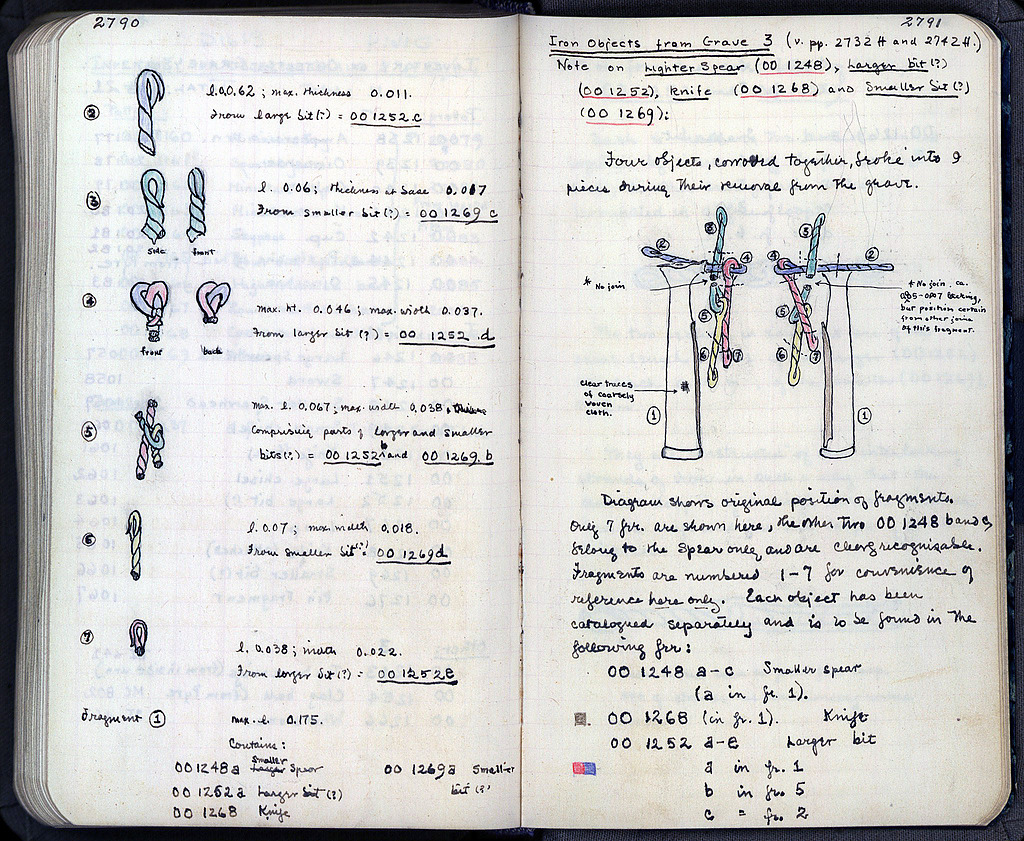 2790
②
l. 0.062; max. thickness 0.011.
From large bit(?) = 001252.c
③
l. 0.06; thickness at base 0.017
From smaller bit(?) = 001269 c
side front
④
max. ht. 0.046; max. width 0.037.
From larger bit (?) = 001252.d
front back
⑤
max. l. 0.067; max. width 0.038,
Comprising parts of larger and smaller
bits(?) = 001252 b and 001269.b
⑥
l. 0.07; max. width 0.018.
From smaller bit(?) = 001269d
⑦
l. 0.038; width 0.022.
From larger bit (?) = 001252E
Fragment ① max. l. 0.175.
Contains:
001248a smaller Larger Spear 001269a Smaller
bit (?)
001252a Larger bit (?)
001268 Knife
2791
Iron Objects from Grave 3 (v. pp. 2732 ff and 2742 ff.)
Note on Lighter Spear (001248), Larger bit (?)
(001252), Knife (001268) and Smaller bit (?)
(001269):
Four objects, corroded together, broke into 9
pieces during their removal from the grave.
③ ③
② ④ ④ ②
* No join
* No join. ca.
lacking,
but position certain
from other joins
of this fragment.
⑤ ⑤
⑥ ⑦ ⑥ ⑦
clear traces
of coarsely
woven
cloth.
① ①
Diagram shows original position of fragments.
Only 7 frr. are shown here, the other two 001248 b and c,
belong to the spear only and are clearly recognisable.
Fragments are numbered 1-7 for convenience of
reference here only. Each object has been
catalogued separately and is to be found in the
following frr:
001248 a-c Smaller spear
(a in fr. 1).
001268 (in fr. 1). Knife
001252 a-e Larger bit
a in fr. 1
b in fr. 5
c = fr. 2